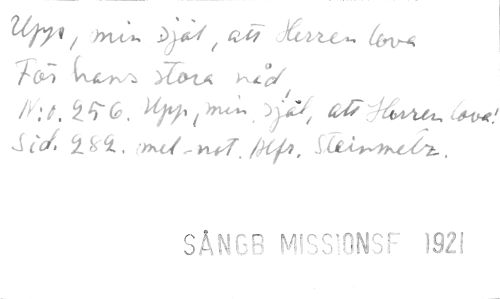 Upp, min själ, att Herren lova
För hans stora nåd,
N:o. 256. Upp, min själ, att Herren lova!
Sid. 282. mel-not. Alfr. Steinmetz.
SÅNGB MISSIONSF 1921